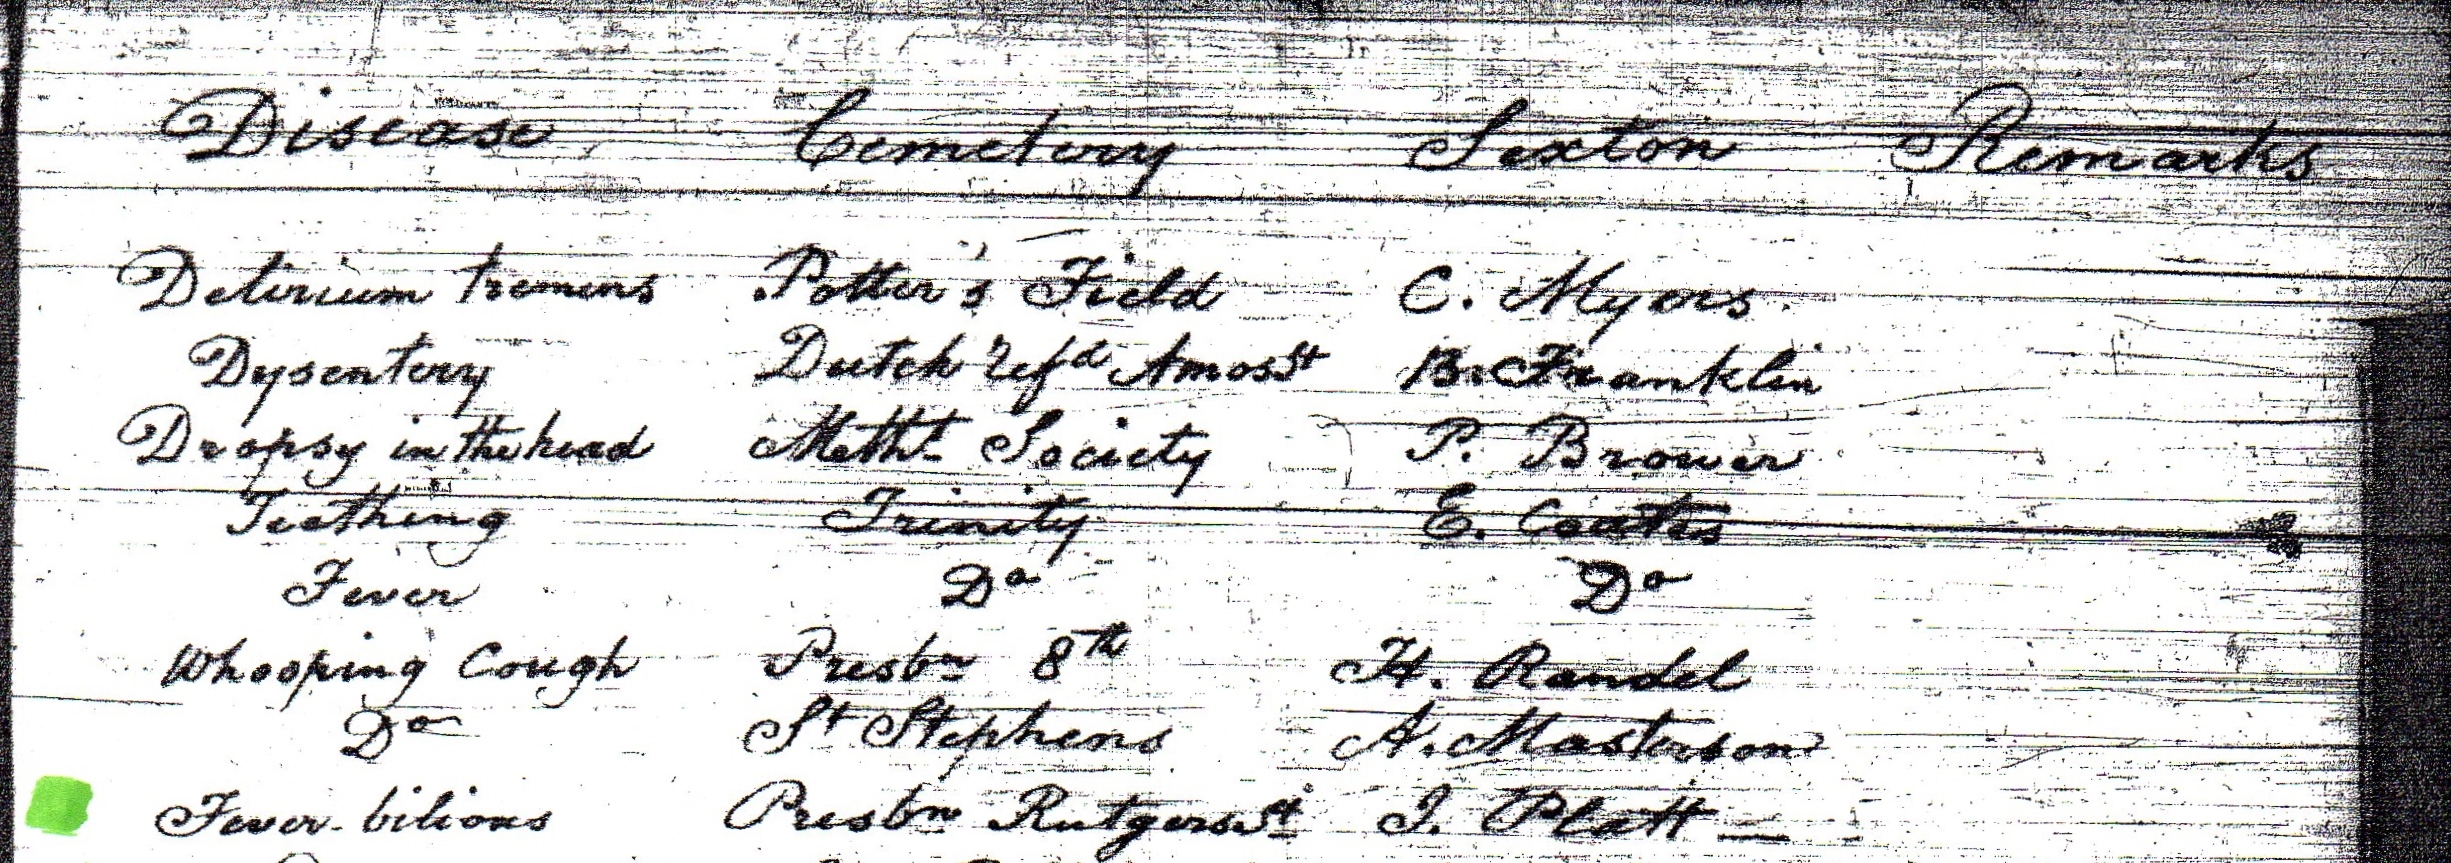 Disease Cemetery Sexton Remarks
Delirium tremens Potter's Field C. Myers
Dysentery Dutch refd Amos St B. Franklin
Dropsy in the head Metht Society P. Brower
Teething Trinity E. Coates
Fever Do Do
Whooping Cough Presbn 8th H. Randel
Do St Stephens A. Masterson
Fever bilious Presbn Rutgers St J. Platt